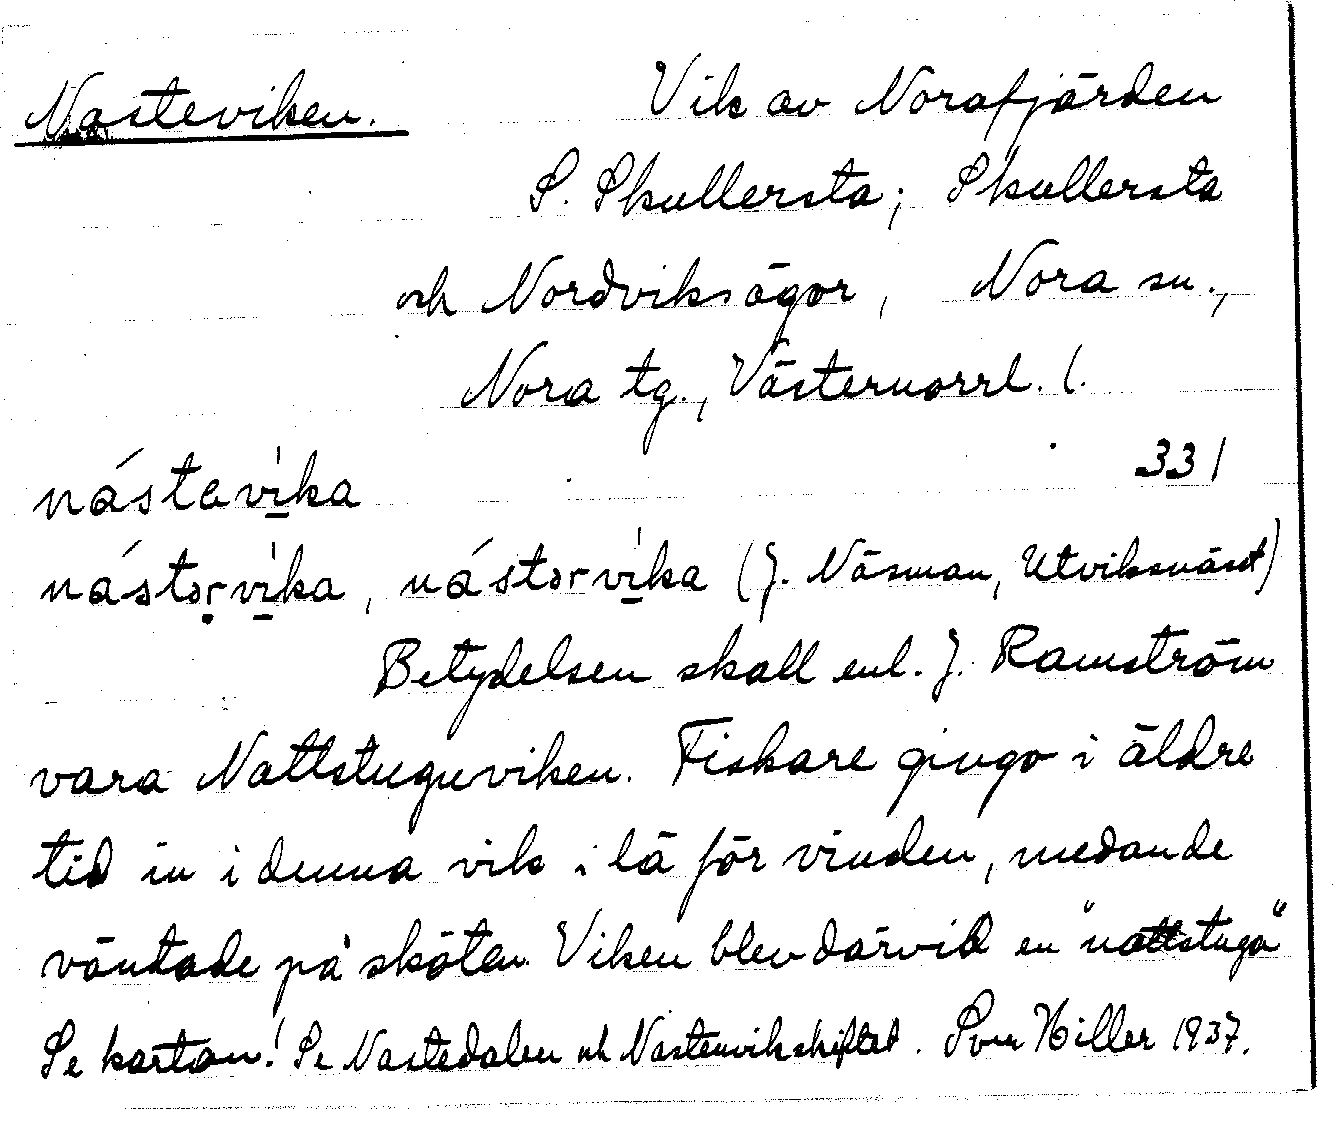 Nasteviken. Vik av Norafjärden
S. Skullersta; Skullersta
och Nordviks ägor, Nora sn.,
Nora tg., Västernorrl. l.
331
nástavika
nástərvika, nástərvika (J. Näsman, Utviksnäset)
Betydelsen skall enl. J. Ramström
vara Nattstuguviken. Fiskare gingo i äldre
tid in i denna vik i lä för vinden, medan de
väntade på skötan. Viken blev därvid en "nattstuga"
Se kartan! Se Nastedalen och Nastenvikskiftet. Hiller 1937.